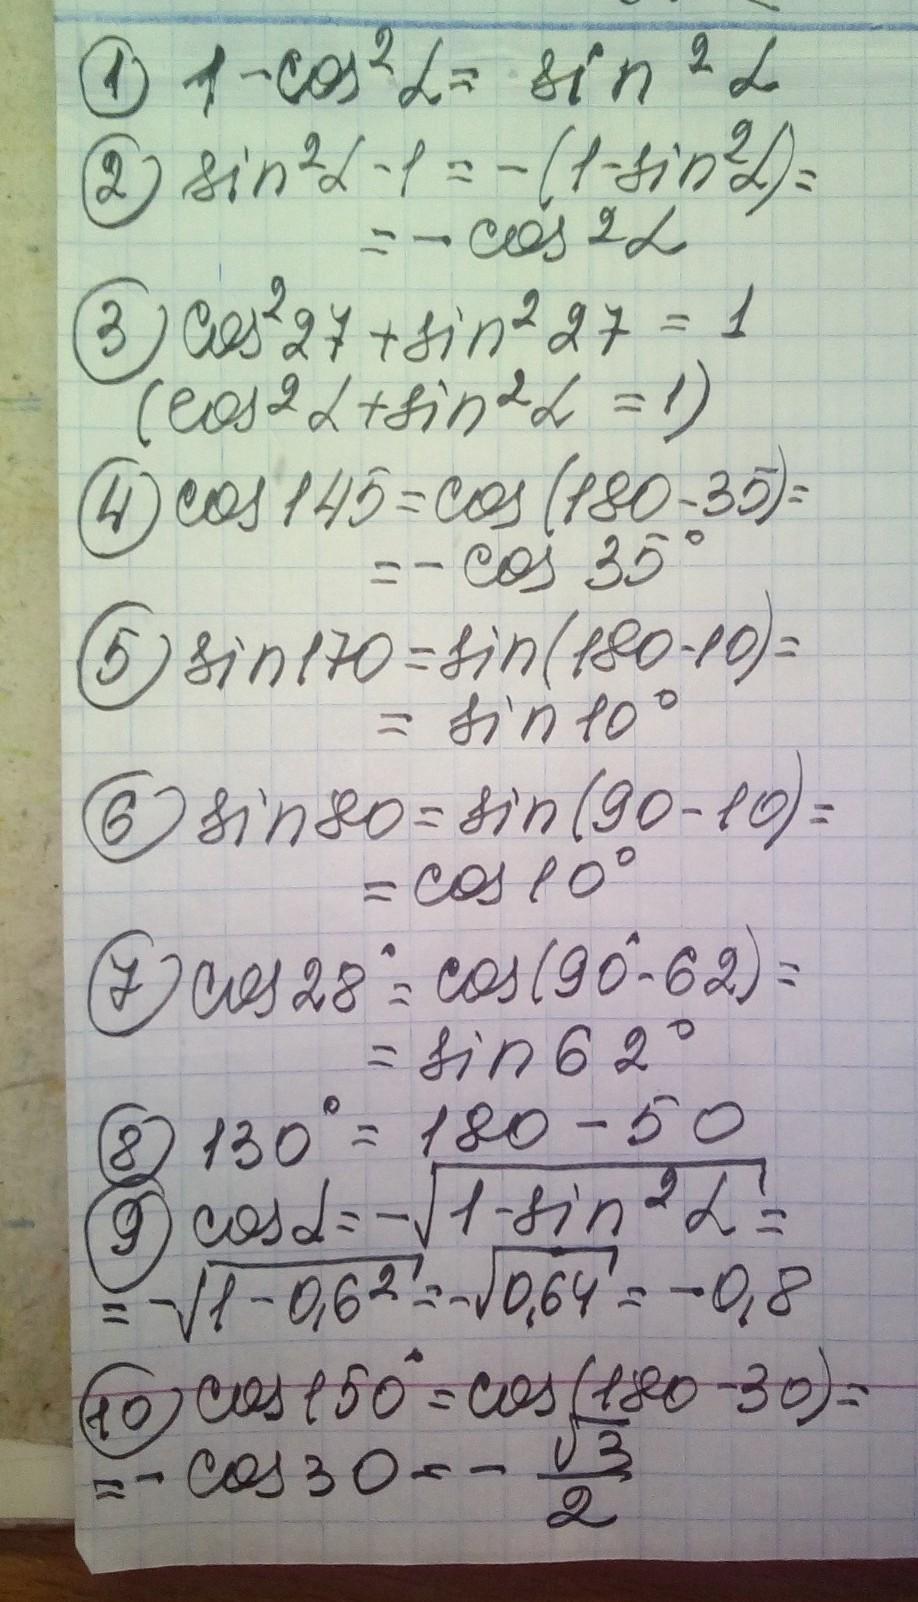 ① 1-cos²α= sin²α
② sin²α-1=-(1-sin²α)=
=-cos²α
③ cos²27+sin²27=1
(cos²α+sin²α=1)
④ cos145=cos(180-35)=
=-cos 35°
⑤ sin170=sin(180-10)=
= sin10°
⑥ sin80=sin(90-10)=
=cos10°
⑦ cos28°=cos(90°-62)=
= sin62°
⑧ 130°= 180-50
⑨ cosα=-√1-sin²α=
=-√1-0,6²=-√0,64=-0,8
⑩ cos150°=cos(180-30)=
=-cos30=-√3/2